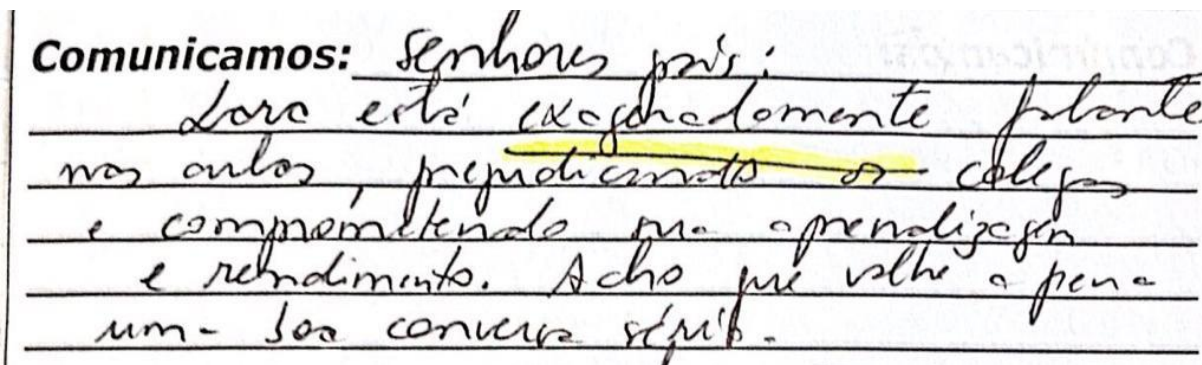 Comunicamos: Senhores pais:
Lara está exageradamente falante
nas aulas, prejudicando os colegas
e comprometendo sua aprendizagem
e rendimento. Acho que valhe a pena
uma boa conversa séria.